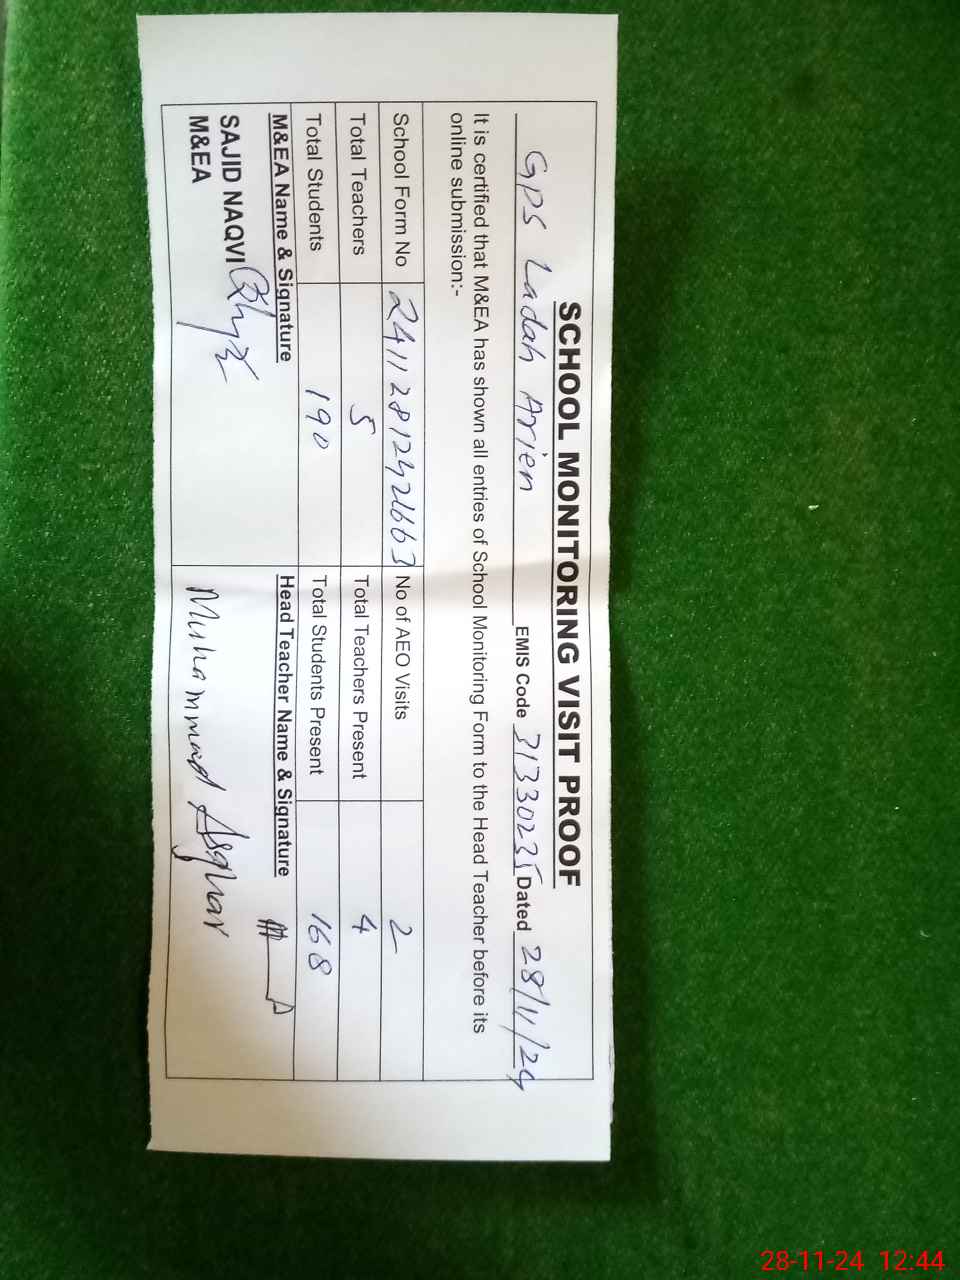 SCHOOL MONITORING VISIT PROOF
GPS Ladah Arien EMIS Code 31330235 Dated 28/11/24
It is certified that M&EA has shown all entries of School Monitoring Form to the Head Teacher before its
online submission:-
School Form No 24112812421663 No of AEO Visits 2
Total Teachers 5 Total Teachers Present 4
Total Students 190 Total Students Present 168
M&EA Name & Signature Head Teacher Name & Signature
SAJID NAQVI Muhammad Asghar
M&EA
28-11-24 12:44